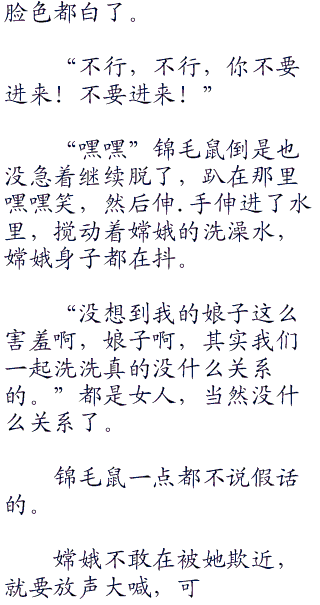 脸色都白了。
“不行，不行，你不要
进来！不要进来！”
“嘿嘿”锦毛鼠倒是也
没急着继续脱了，趴在那里
嘿嘿笑，然后伸.手伸进了水
里，搅动着嫦娥的洗澡水，
嫦娥身子都在抖。
“没想到我的娘子这么
害羞啊，娘子啊，其实我们
一起洗洗真的没什么关系
的。”都是女人，当然没什
么关系了。
锦毛鼠一点都不说假话
的。
嫦娥不敢在被她欺近，
就要放声大喊，可